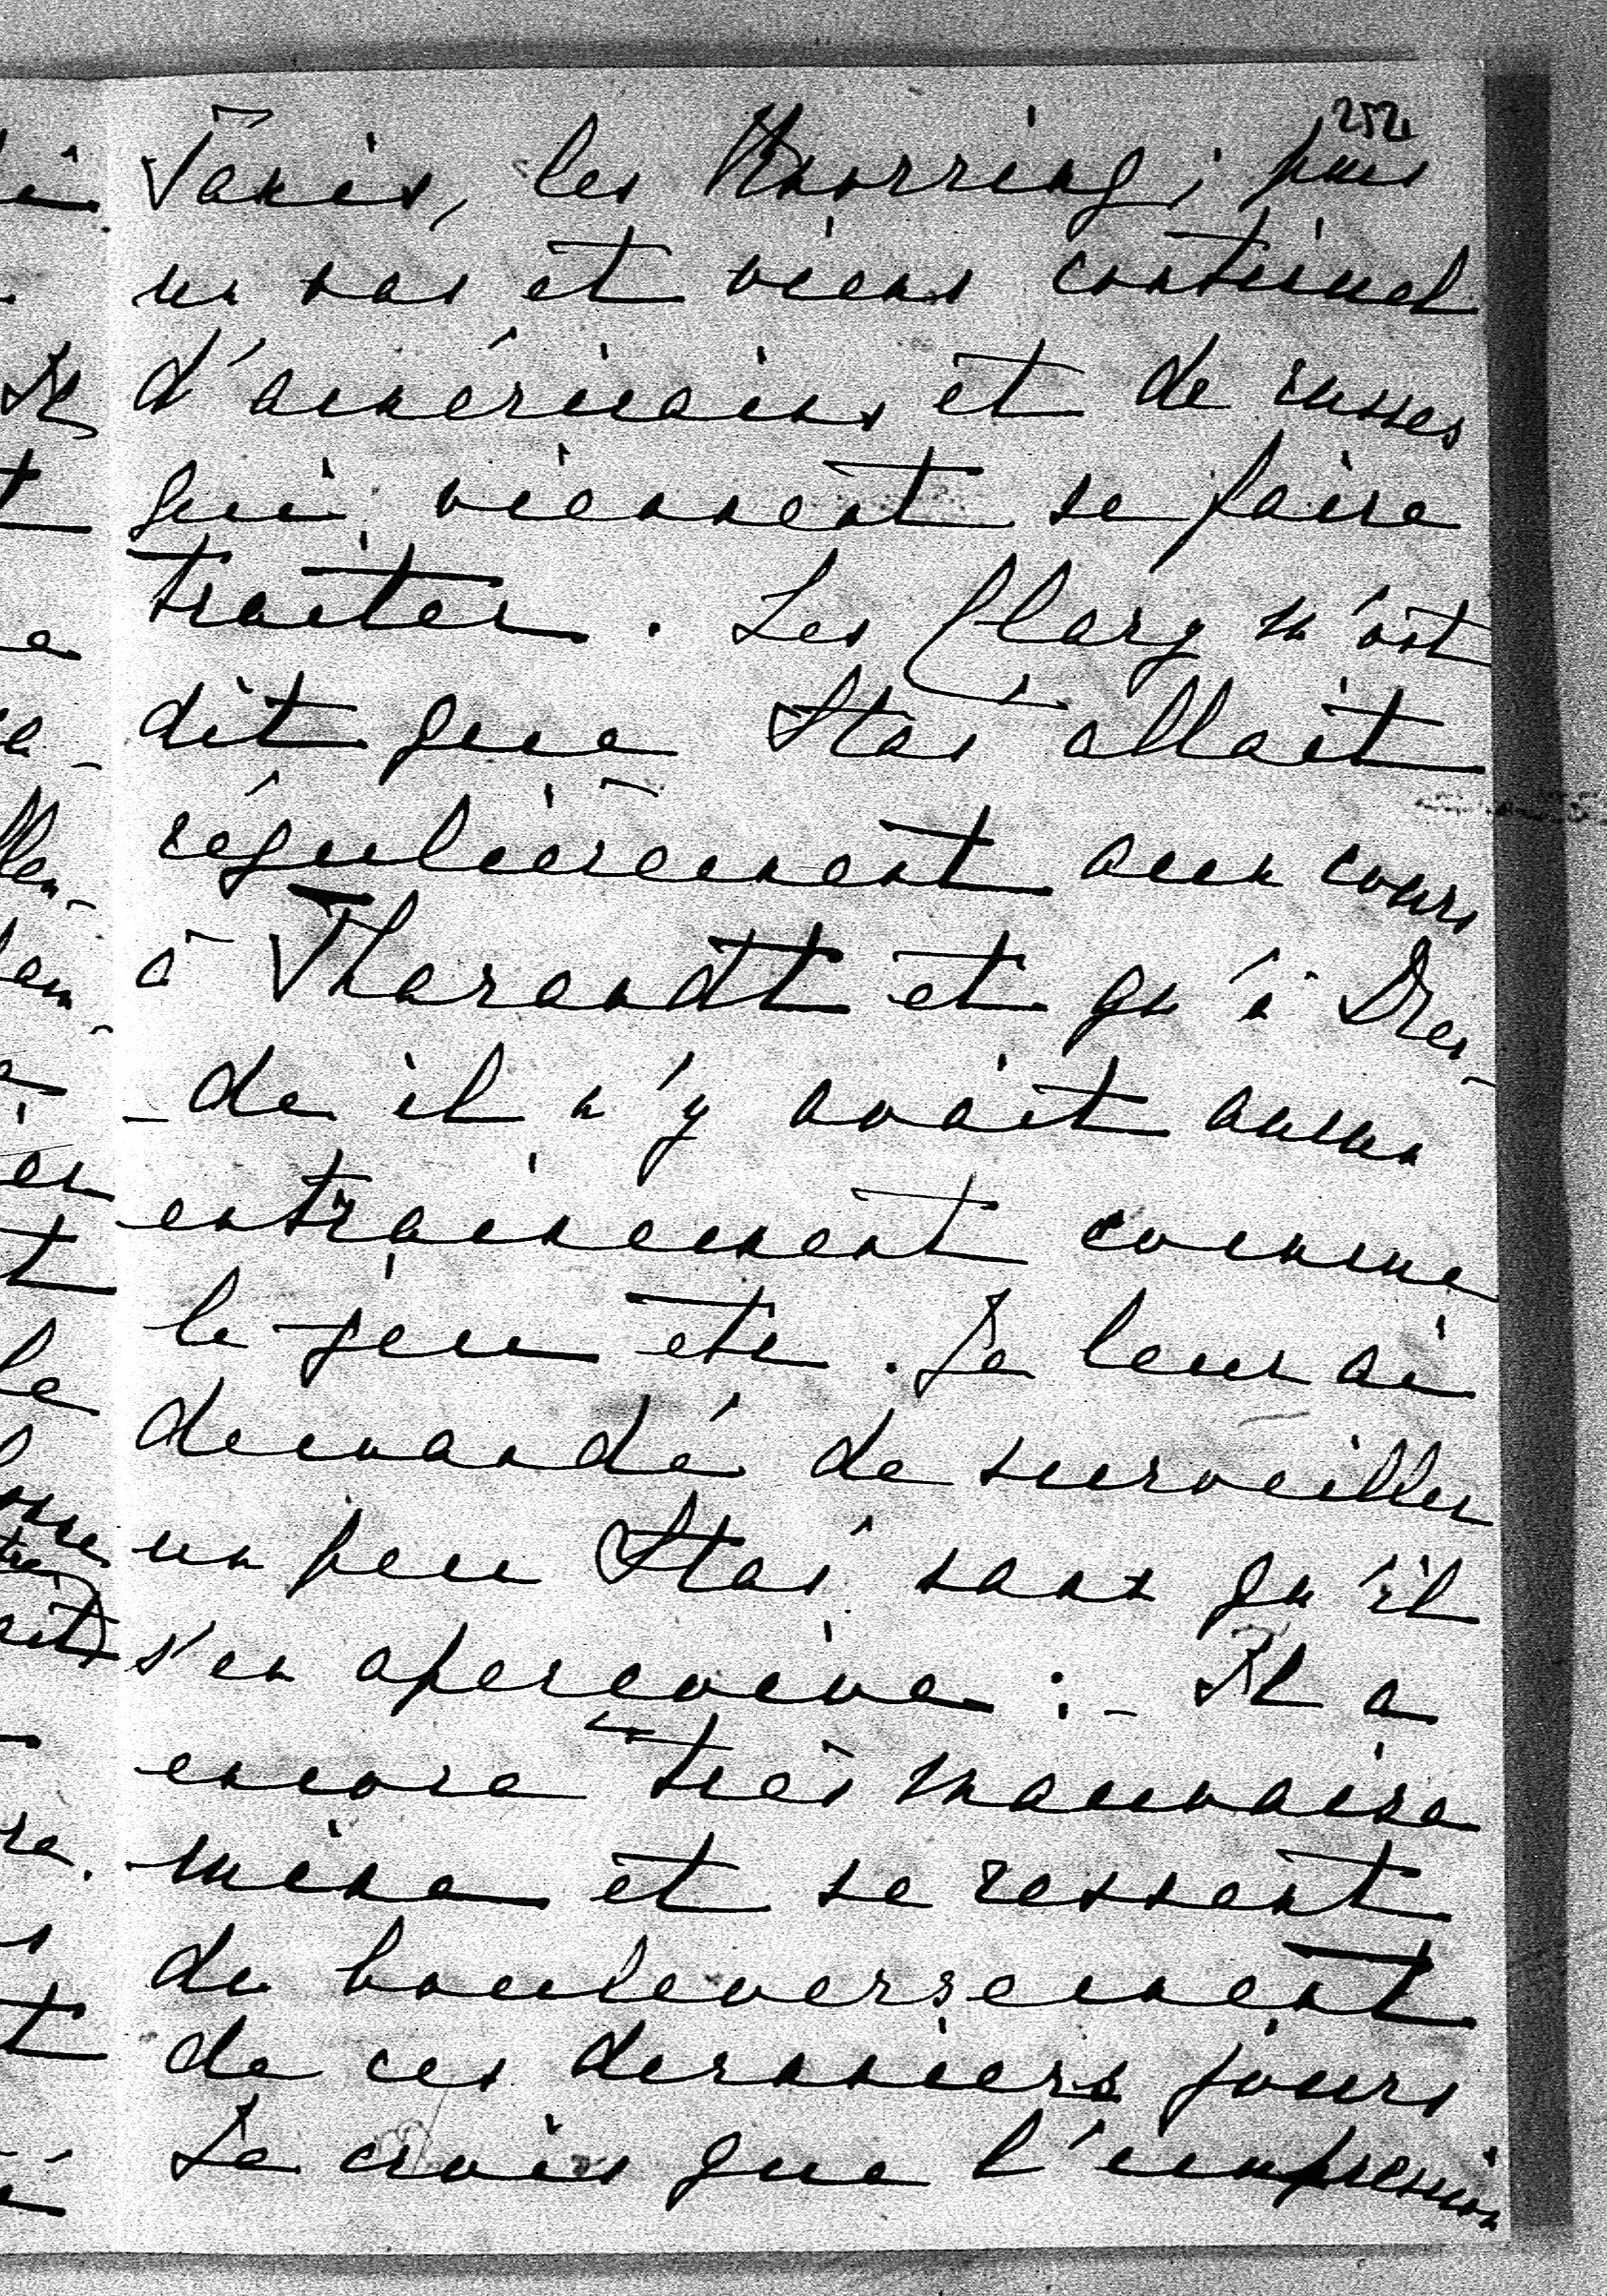 252
Taxis, les Knorring; puis
un vas et viens continuel
d'américains et de russes
qui viennent se faire
traiter. Les Clary m'ont
dit que Stas allait
régulièrement aux cours
à Tharandt et qu'à Dres-
-de il n'y avait aucun
entrainement comme
le jeu etc. Je leur ai
demandé de surveiller
un peu Stas sans qu'il
s'en aperçoive:- Il a
encore très mauvaise
mine et se ressent
du bouleversement
de ces derniers jours
Je crois que l'impression